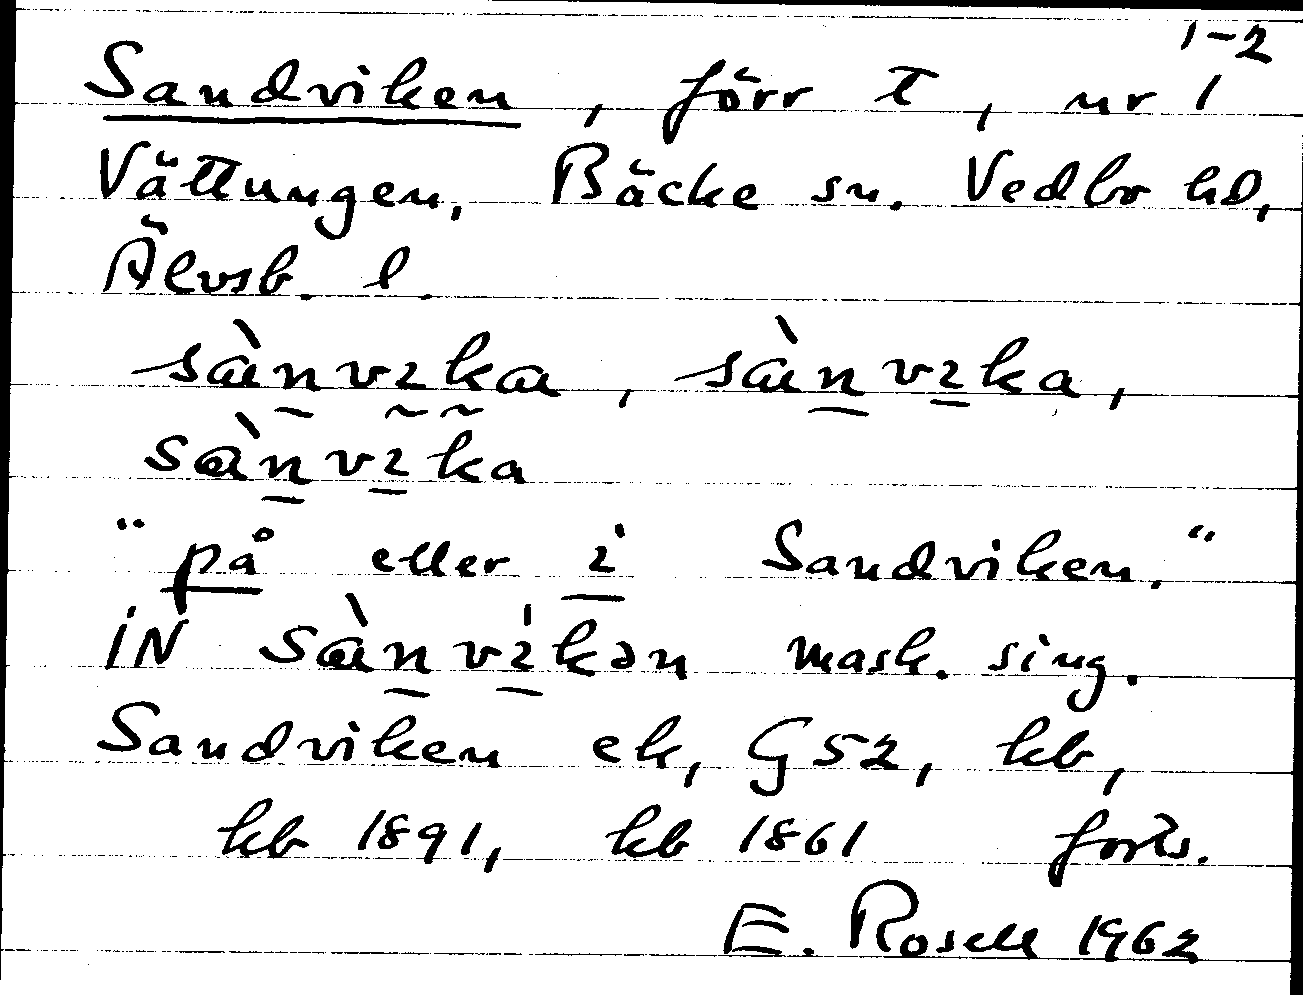 1-2
Sandviken, förr T, nr 1
Vättungen, Bäcke sn. Vedbo hd,
Älvsb. l.
sànvɩka, sànvɩka,
sànvɩka
"på eller i Sandviken."
iN sànvɩkən mask. sing.
Sandviken ek, G52, kb,
hb 1891, hb 1861 forts.
E. Rosell 1962